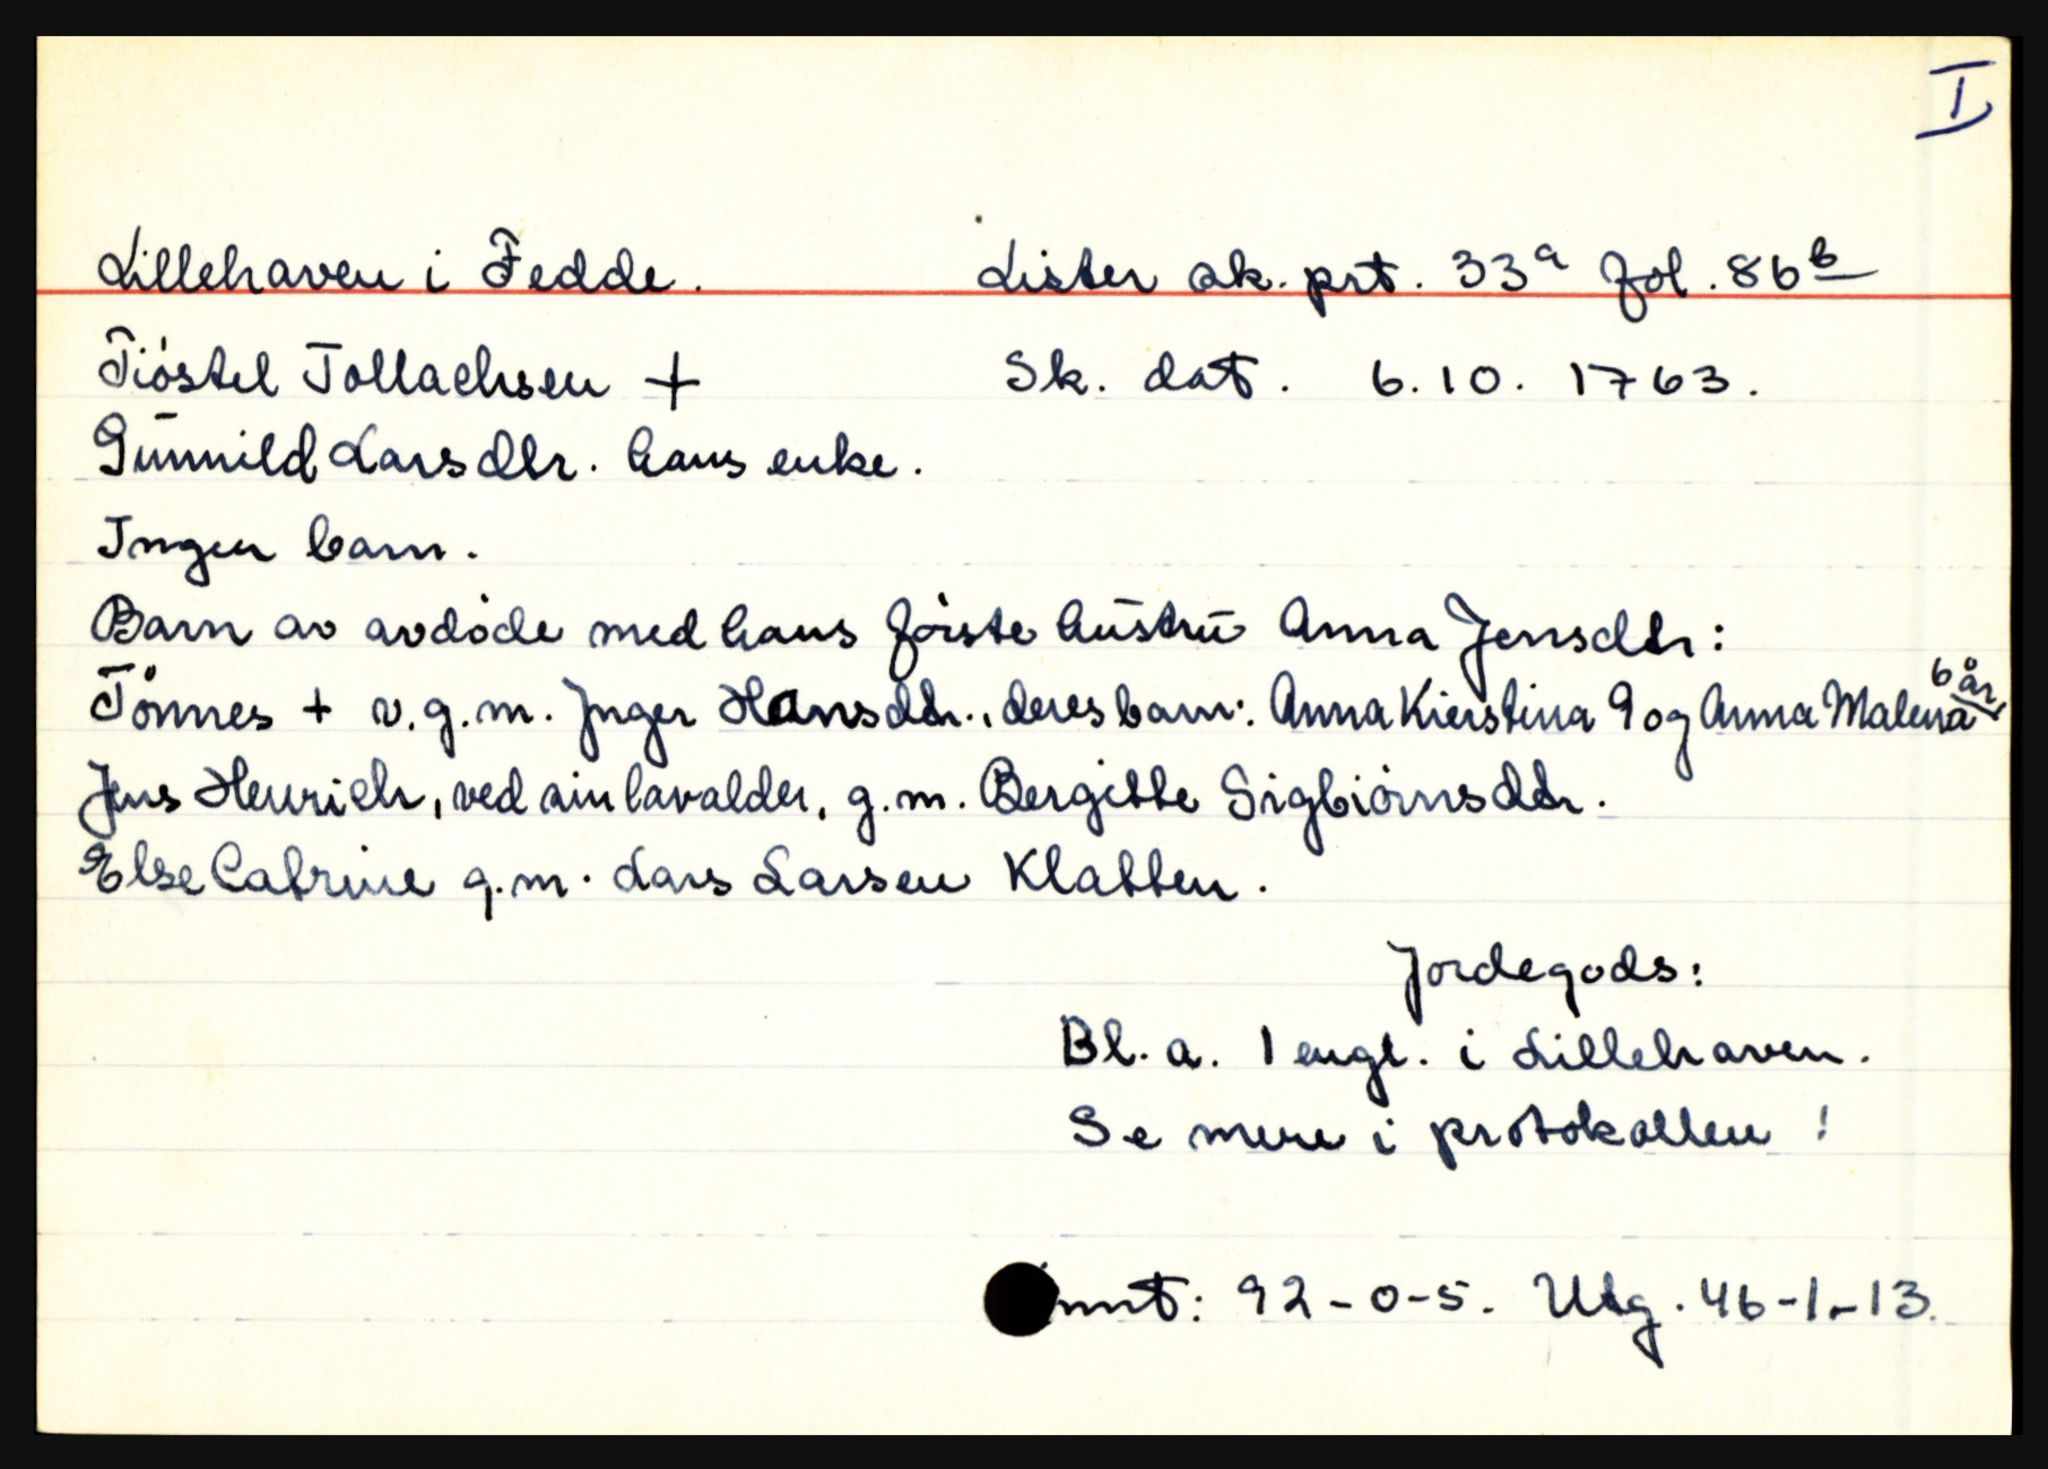 I
Lillehaven i Fedde. Lister sk. prt. 33a fol. 86b
Tiøstel Tollachsen + Sk. dat. 6. 10. 1763.
Gunnild Larsdtr. hans enke.
Ingen barn.
Barn av avdøde med hans første hustru Anna Jensdtr:
Tønnes + v. g. m. Inger Hansdtr., deres barn: Anna Kierstina 9 og Anna Malena 6 år
Jens Henrich, ved sin lavalder, g. m. Bergitte Sigbiørnsdtr.
Else Catrine g. m. Lars Larsen Klatten.
Jordegods:
Bl. a. 1 engl. i Lillehaven.
Se mere i protokollen!
mt: 92-0-5. Utg. 46-1-13.